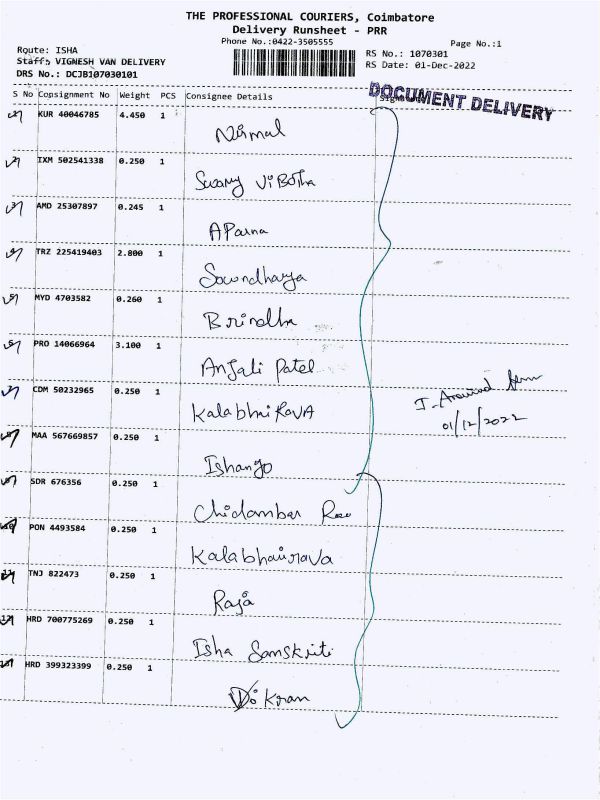 THE PROFESSIONAL COURIERS, Coimbatore
Delivery Runsheet - PRR
Phone No.:0422-3505555
Page No.:1
Route: ISHA
RS No.: 1070301
Staff: VIGNESH VAN DELIVERY
RS Date: 01-Dec-2022
DRS No.: DCJB107030101
DOCUMENT DELIVERY
S No Consignment No Weight PCS Consignee Details
KUR 40046785 4.450 1
Nirmal
IXM 502541338 0.250 1
Swamy Vibotha
AMD 25307897 0.245 1
AParna
TRZ 225419403 2.800 1
Soundharya
MYD 4703582 0.260 1
Brindha
PRO 14066964 3.100 1
Anjali Patel
CDM 50232965 0.250 1
KalabhaiRavA
MAA 567669857 0.250 1
Ishango
SDR 676356 0.250 1
Chidambar Rao
PON 4493584 0.250 1
Kalabhairava
TNJ 822473 0.250 1
Raja
HRD 700775269 0.250 1
Isha Sanskriti
HRD 399323399 0.250 1
Vikran
I. Aravind
01/12/2022